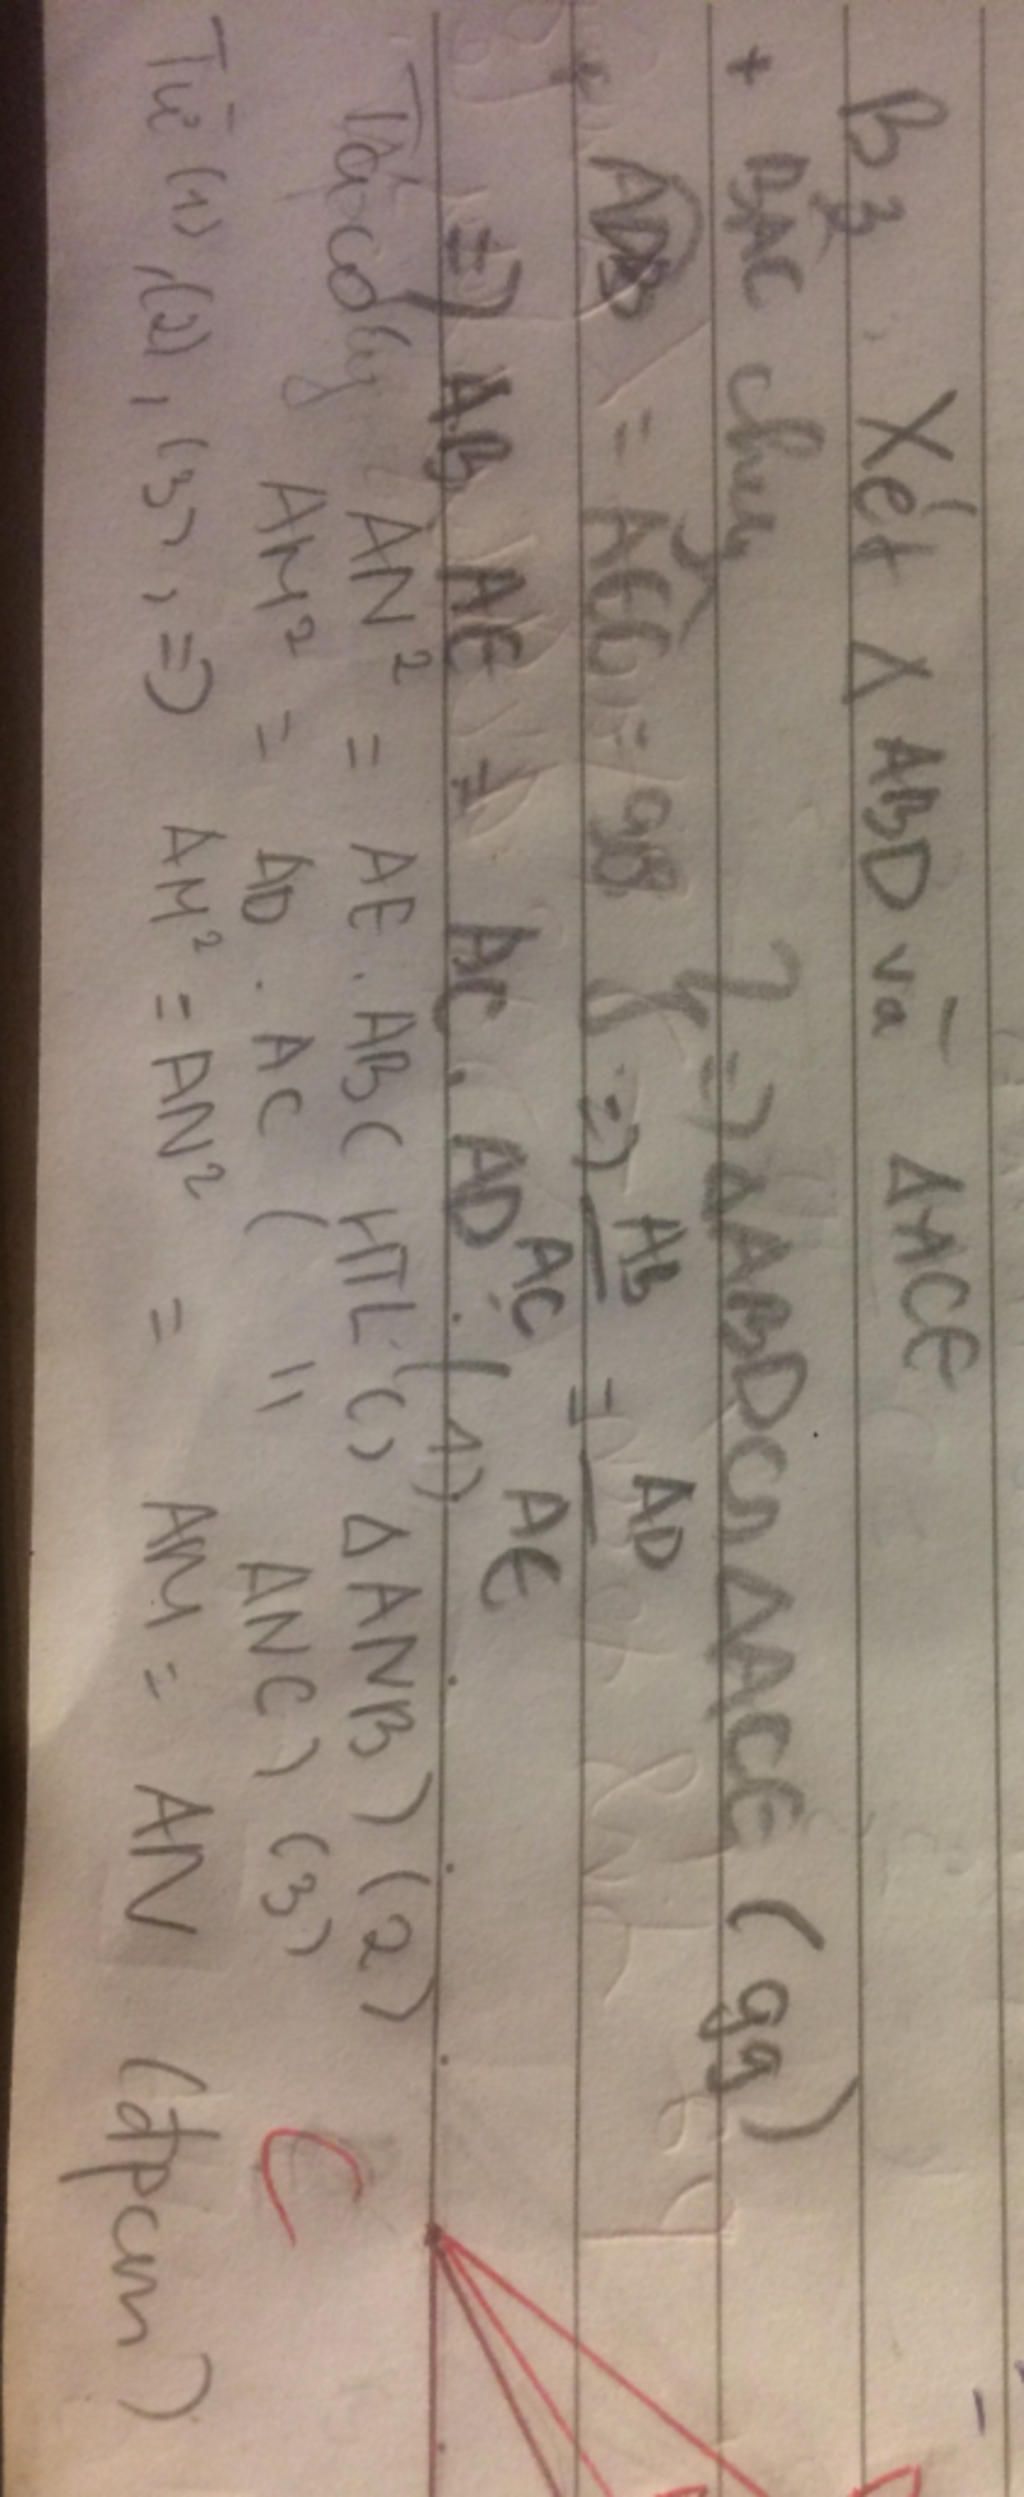 B3. Xét Δ ABD và ΔACE
+ BAC chung
+ ADB = AEC = 90 } => ΔABD ∽ ΔACE (gg)
=> AB/AC = AD/AE
=> AB. AE = AC. AD. (1)
Ta có AN² = AE. AB ( HTL Δ ANB) (2)
AM² = AD. AC ( " ANC) (3)
Từ (1), (2), (3), => AM² = AN² = AM = AN (đpcm)
C